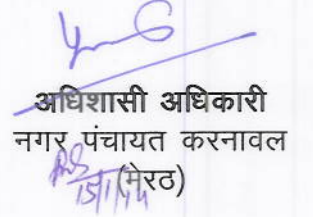 अधिशासी अधिकारी
नगर पंचायत करनावल
(मेरठ)
15/1/14